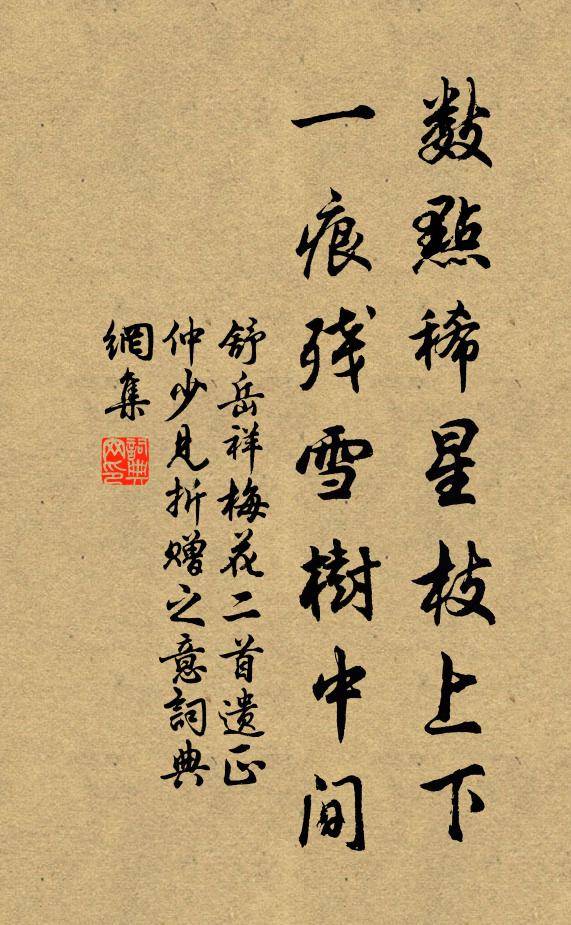 數點稀星枝上下
一痕残雪樹中间
舒岳祥梅花二首遗正
仲少見折赠之意詞典
網集
詞典网印